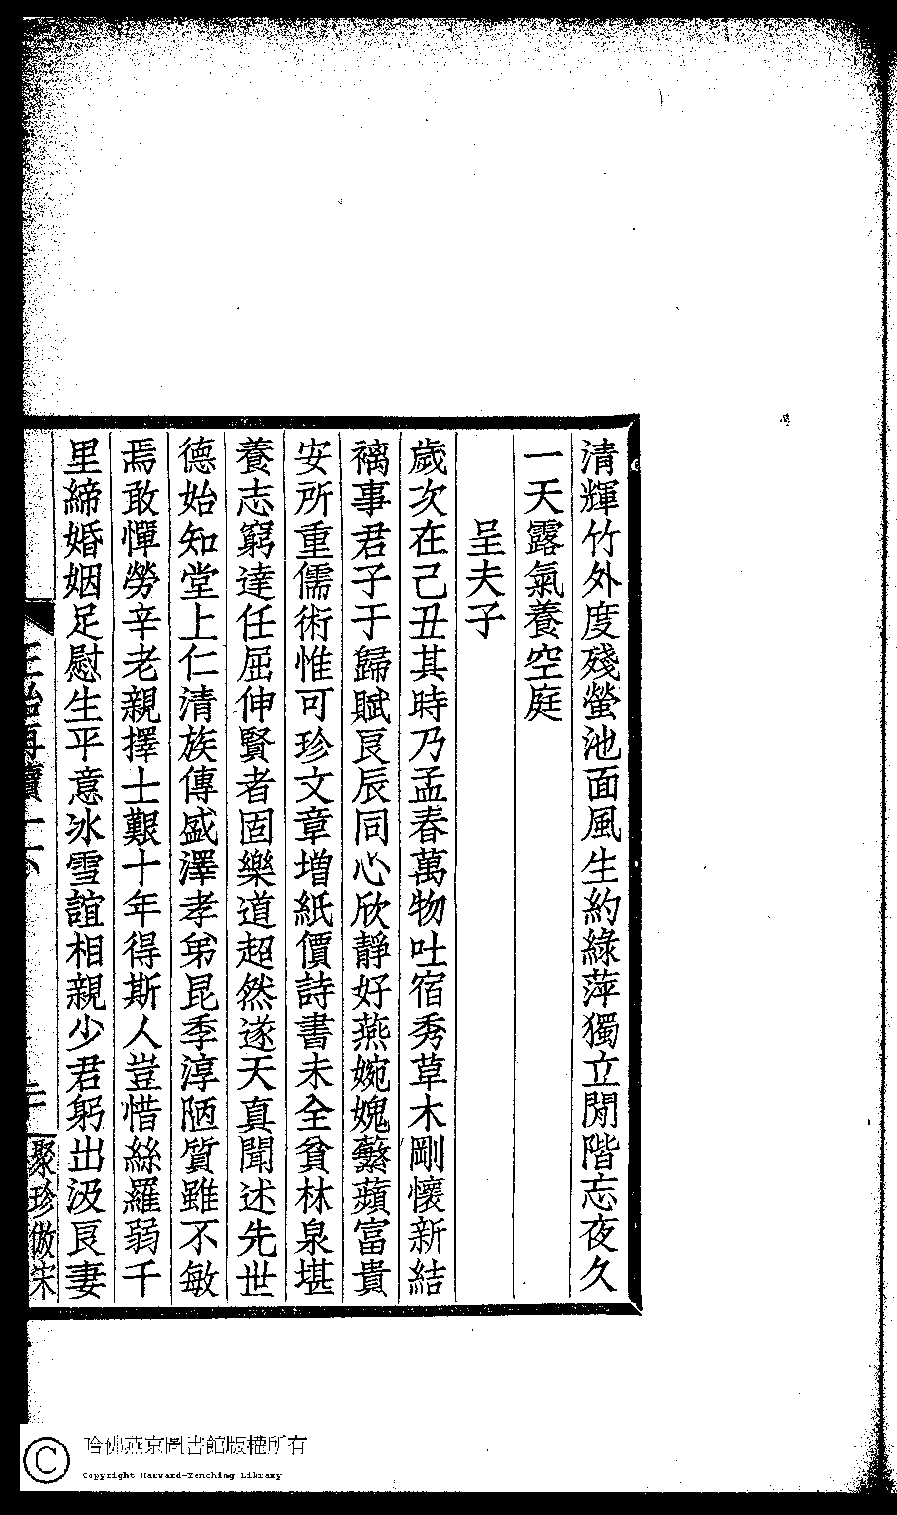 清輝竹外度殘螢池面風生約綠萍獨立閒階忘夜久
一天露氣養空庭
呈夫子
歲次在己丑其時乃孟春萬物吐宿秀草木剛懷新結
褵事君子于歸賦良辰同心欣靜好燕婉媿蘩蘋富貴
安所重儒術惟可珍文章增紙價詩書未全貧林泉堪
養志窮達任屈伸賢者固樂道超然遂天真聞述先世
德始知堂上仁清族傳盛澤孝弟昆季淳陋質雖不敏
焉敢憚勞辛老親擇士艱十年得斯人豈惜絲羅弱千
里締婚姻足慰生平意冰雪誼相親少君躬出汲良妻
聚珍倣宋
哈佛燕京圖書館版權所有
Copyright Harvard-Yenching Library